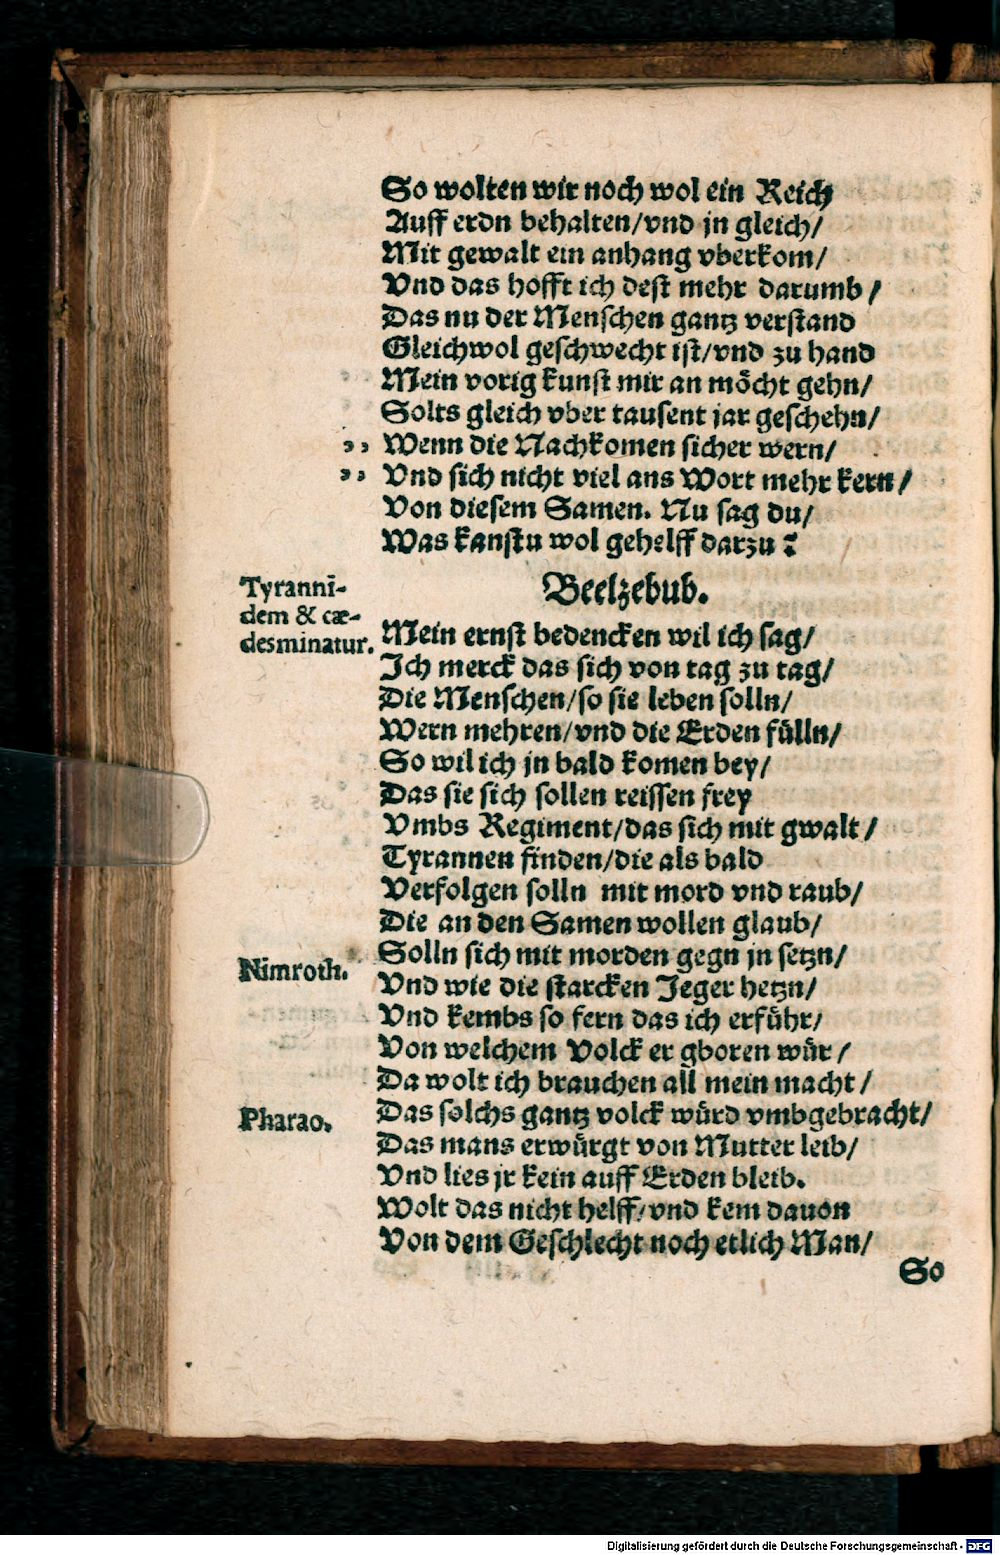 So wolten wir noch wol ein Reich
Auff erdn behalten/vnd jn gleich/
Mit gewalt ein anhang vberkom/
Vnd das hofft ich dest mehr darumb/
Das nu der Menschen gantz verstand
Gleichwol geschwecht ist/vnd zu hand
Mein vorig kunst mir an möcht gehn/
Solts gleich vber tausent jar geschehn/
,, Wenn die Nachkomen sicher wern/
,, Vnd sich nicht viel ans Wort mehr kern/
Von diesem Samen. Nu sag du/
Was kanstu wol gehelff darzu?
Beelzebub.
Tyranni-
dem & cæ-
desminatur.
Mein ernst bedencken wil ich sag/
Ich merck das sich von tag zu tag/
Die Menschen/so sie leben solln/
Wern mehren/vnd die Erden fülln/
So wil ich jn bald komen bey/
Das sie sich sollen reissen frey
Vmbs Regiment/das sich mit gwalt/
Tyrannen finden/die als bald
Verfolgen solln mit mord vnd raub/
Die an den Samen wollen glaub/
Solln sich mit morden gegn jn setzn/
Nimroth.
Vnd wie die starcken Jeger hetzn/
Vnd kembs so fern das ich erführ/
Von welchem Volck er gboren wür/
Da wolt ich brauchen all mein macht/
Das solchs gantz volck würd vmbgebracht/
Pharao.
Das mans erwürgt von Mutter leib/
Vnd lies jr kein auff Erden bleib.
Wolt das nicht helff/vnd kem dauon
Von dem Geschlecht noch etlich Man/
So
Digitalisierung gefördert durch die Deutsche Forschungsgemeinschaft - DFG